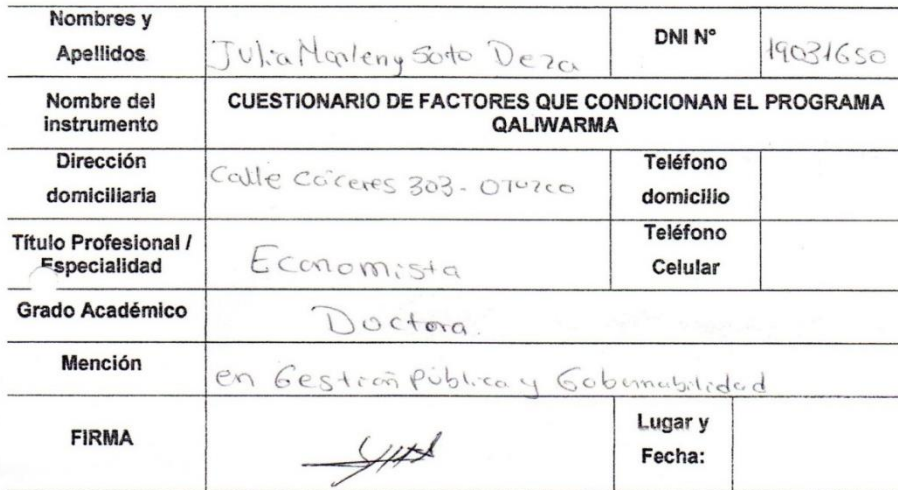 Nombres y
Apellidos
Julia Marleny Soto Deza
DNI N°
19031650
Nombre del
instrumento
CUESTIONARIO DE FACTORES QUE CONDICIONAN EL PROGRAMA
QALIWARMA
Dirección
domiciliaria
Calle Cáceres 303 - OTUZCO
Teléfono
domicilio
Título Profesional /
Especialidad
Economista
Teléfono
Celular
Grado Académico
Doctora.
Mención
en Gestión Pública y Gobernabilidad
FIRMA
Lugar y
Fecha: